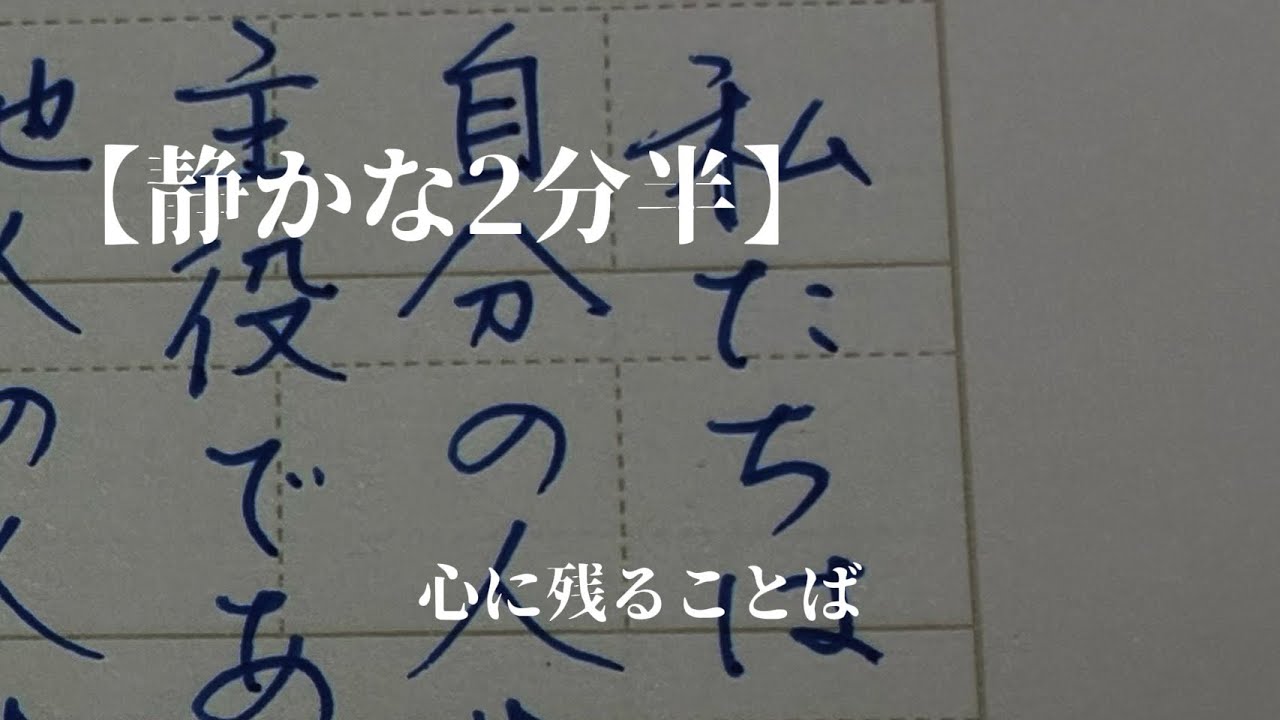 【静かな2分半】
心に残ることば
私たちは
自分の人
主役であ
他人の人